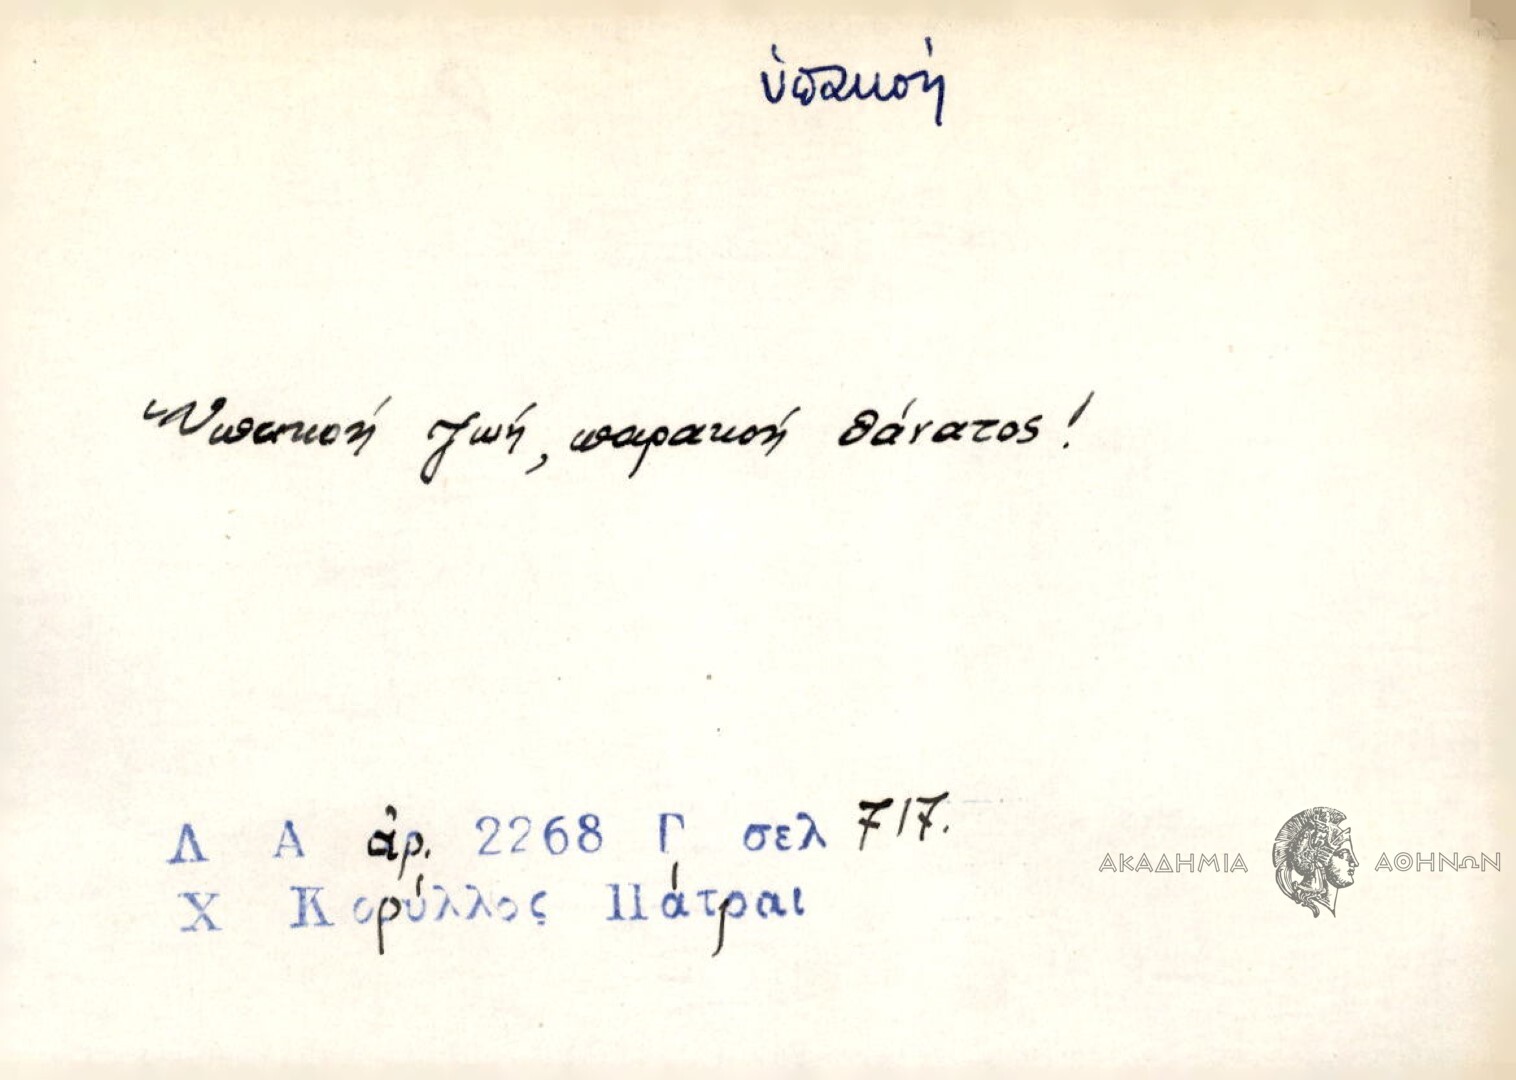 ὑπακοή
Ὑπακοή ζωή, παρακοή θάνατος!
Λ Α ἀρ. 2268 Γ σελ 717.
Χ Κορύλλος Πάτραι
ΑΚΑΔΗΜΙΑ ΑΘΗΝΩΝ